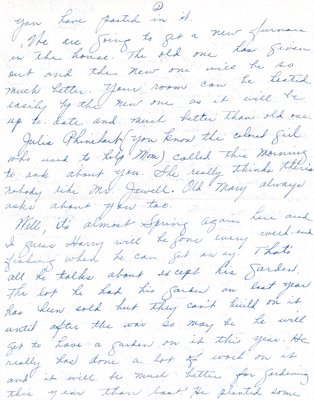 2
you have pasted in it.
We are going to get a new furnace
in the house. The old one has given
out and the new one will be so
much better. Your room can be heated
easily by the new one as it will be
up to date and much better than old one.
Julia Rhinehart (you know the colored girl
who used to help Mom) called this morning
to ask about you. She really thinks there's
nobody like Mr. Jewell. Old Mary always
asks about you too.
Well, it's almost Spring again here and
I guess Harry will be gone every week-end
fishing when he can get away. That's
all he talks about except his garden.
The lot he had his garden on last year
has been sold but they can't build on it
until after the war so may be he will
get to have a garden on it this year. He
really has done a lot of work on it
and it will be much better for gardening
this year than last. He planted some